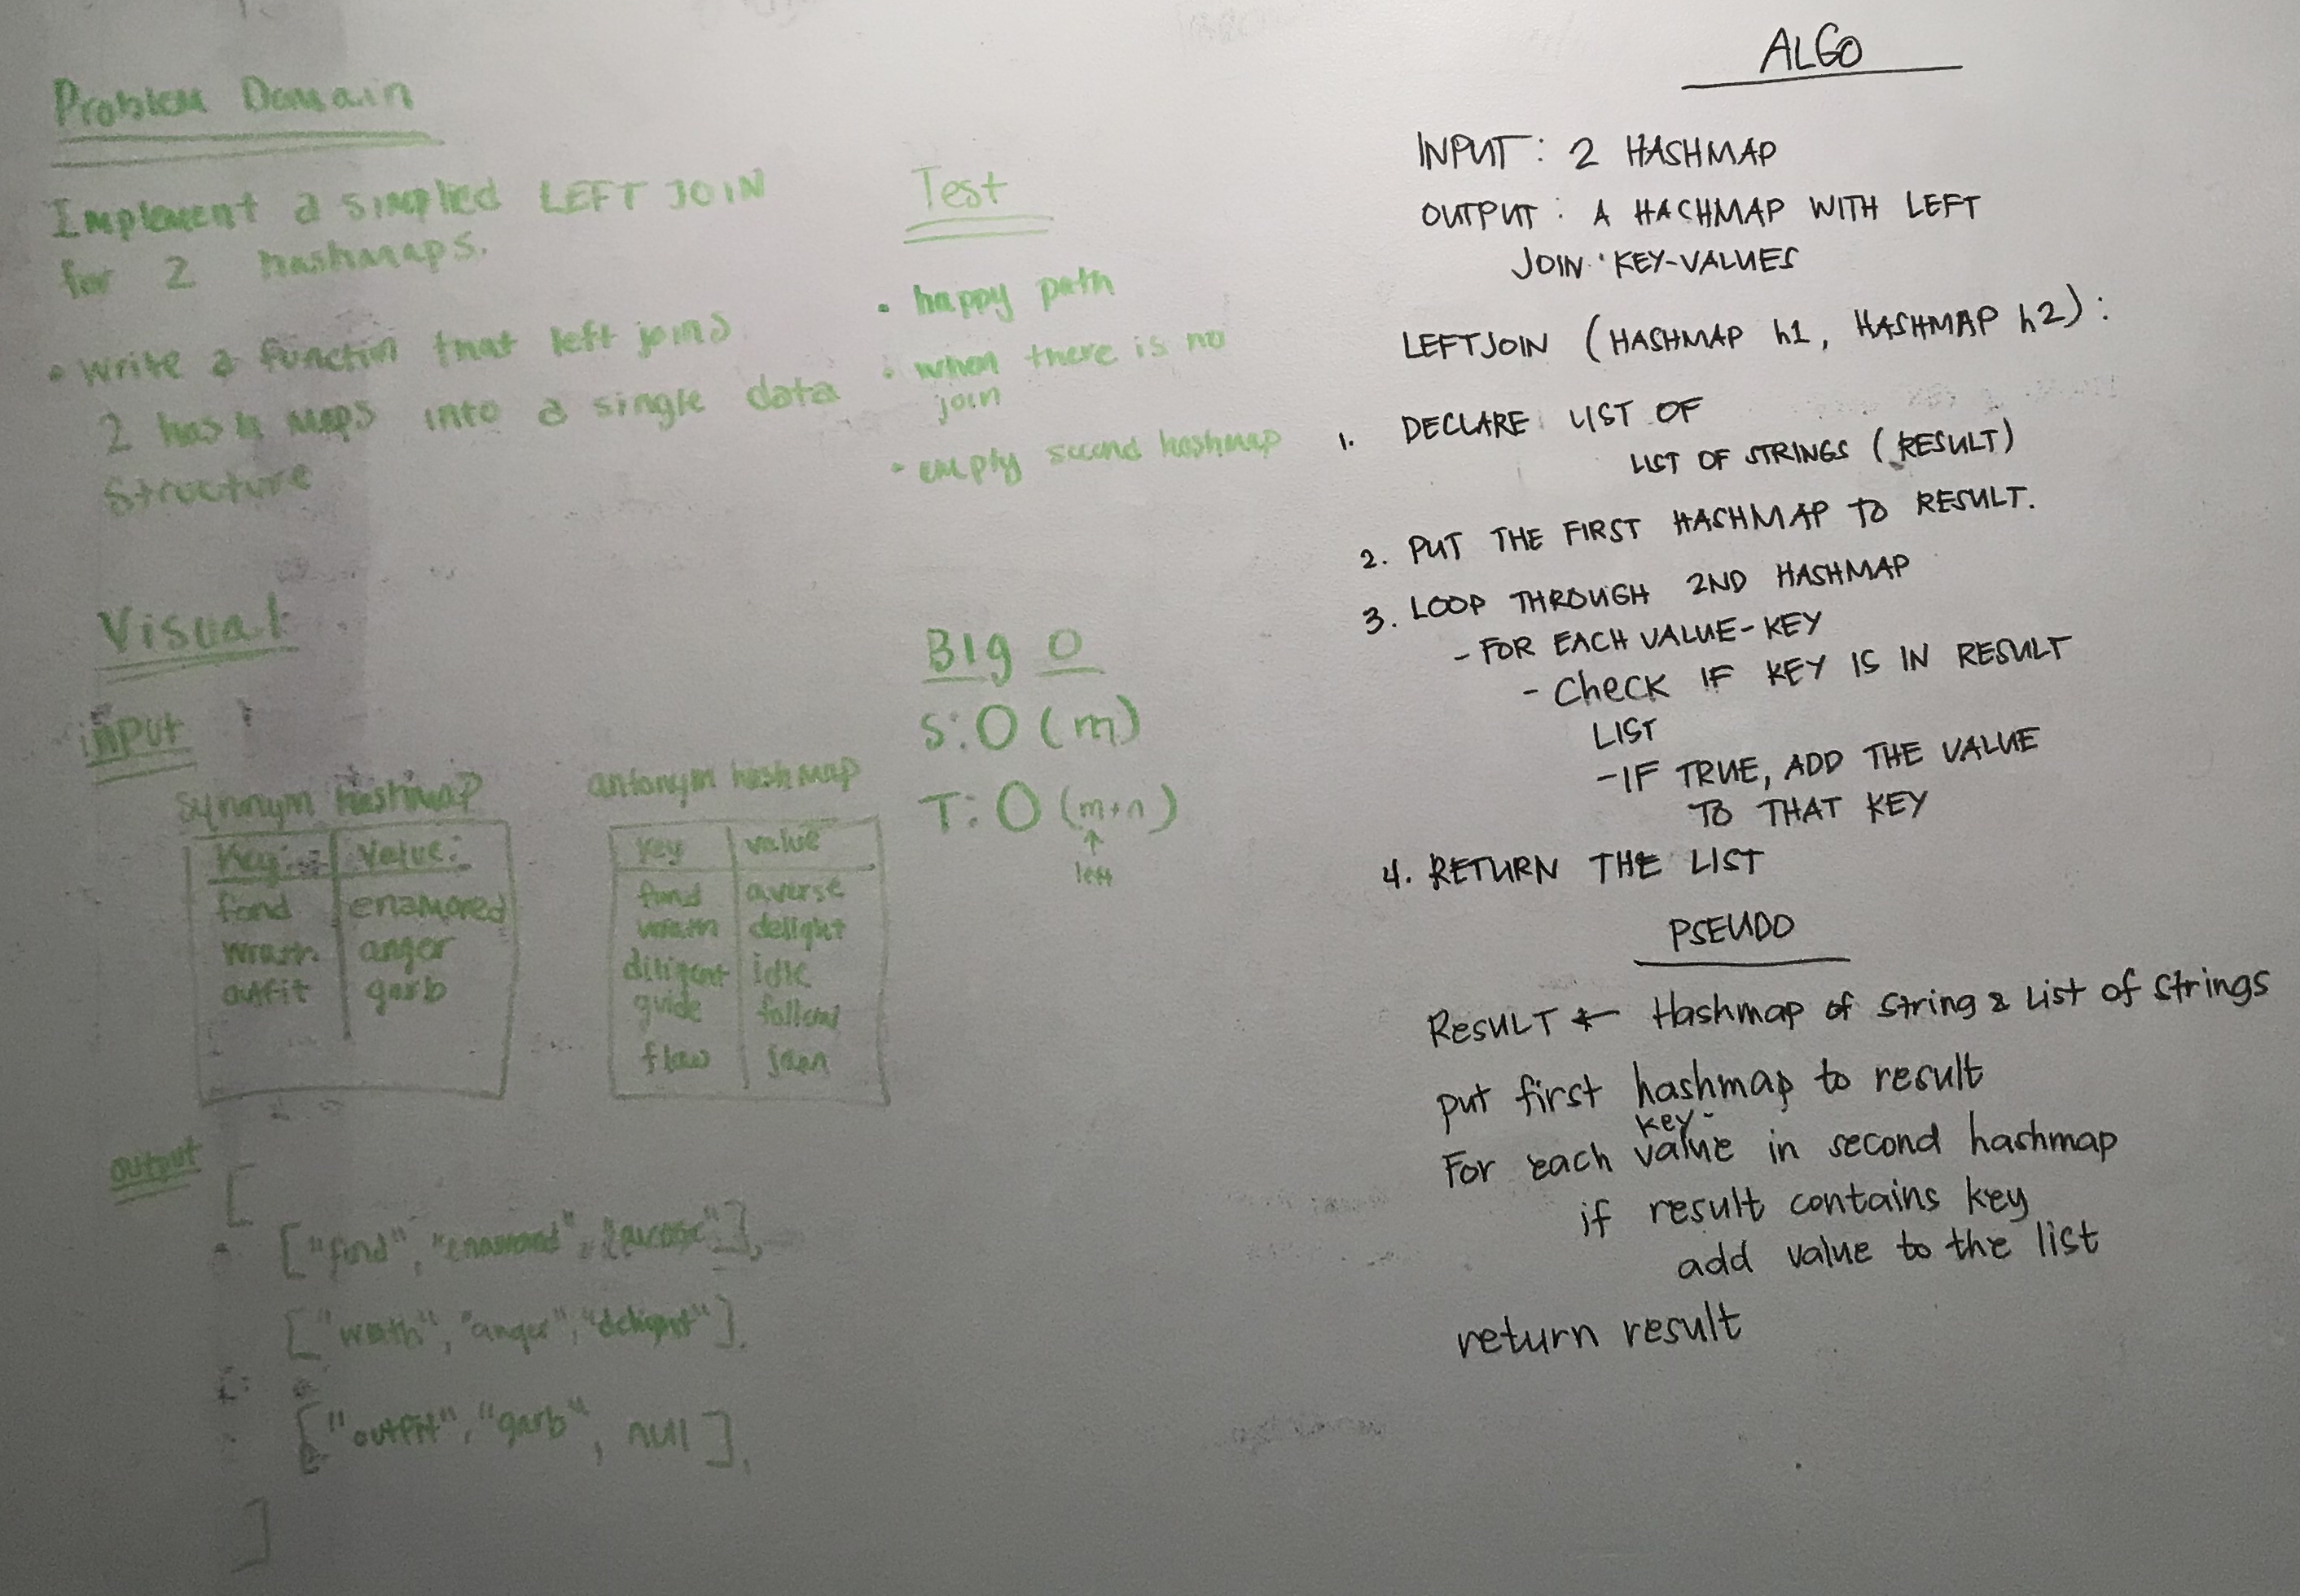 Problem Domain
Implement a simplied LEFT JOIN
for 2 hashmaps.
• Write a functin that left joins
2 hash maps into a single data
structure
Test
• happy path
• when there is no
join
• empty second hashmap
Visual
input
synonym hashmap
Key: Value:
fond enamored
wrath anger
outfit garb
antonym hashmap
key value
fond averse
wrath delight
diligent idle
guide follow
flaw jam
Big O
S: O (m)
T: O (m+n)
↑
left
output
[
["fond", "enamored", "averse"],
["wrath", "anger", "delight"],
["outfit", "garb", null],
]
ALGO
INPUT: 2 HASHMAP
OUTPUT: A HACHMAP WITH LEFT
JOIN KEY-VALUES
LEFTJOIN (HASHMAP h1, HASHMAP h2):
1. DECLARE LIST OF
LIST OF STRINGS (RESULT)
2. PUT THE FIRST HASHMAP TO RESULT.
3. LOOP THROUGH 2ND HASHMAP
- FOR EACH VALUE-KEY
- Check IF KEY IS IN RESULT
LIST
- IF TRUE, ADD THE VALUE
TO THAT KEY
4. RETURN THE LIST
PSEUDO
RESULT ← Hashmap of String & List of Strings
put first hashmap to result
key-
For each value in second hashmap
if result contains key
add value to the list
return result